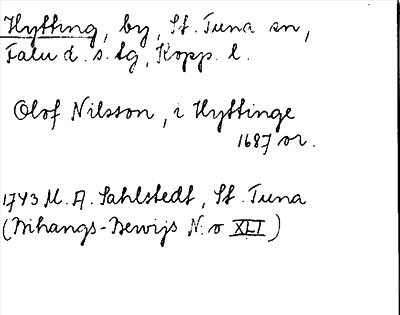 Hytting, by, St. Tuna sn,
Falu d. s. tg, Kopp. l.
Olof Nilsson, i Hyttinge
1687 or.
1743 M. A. Sahlstedt, St. Tuna
(Bihangs-Bewijs N.o XLI)